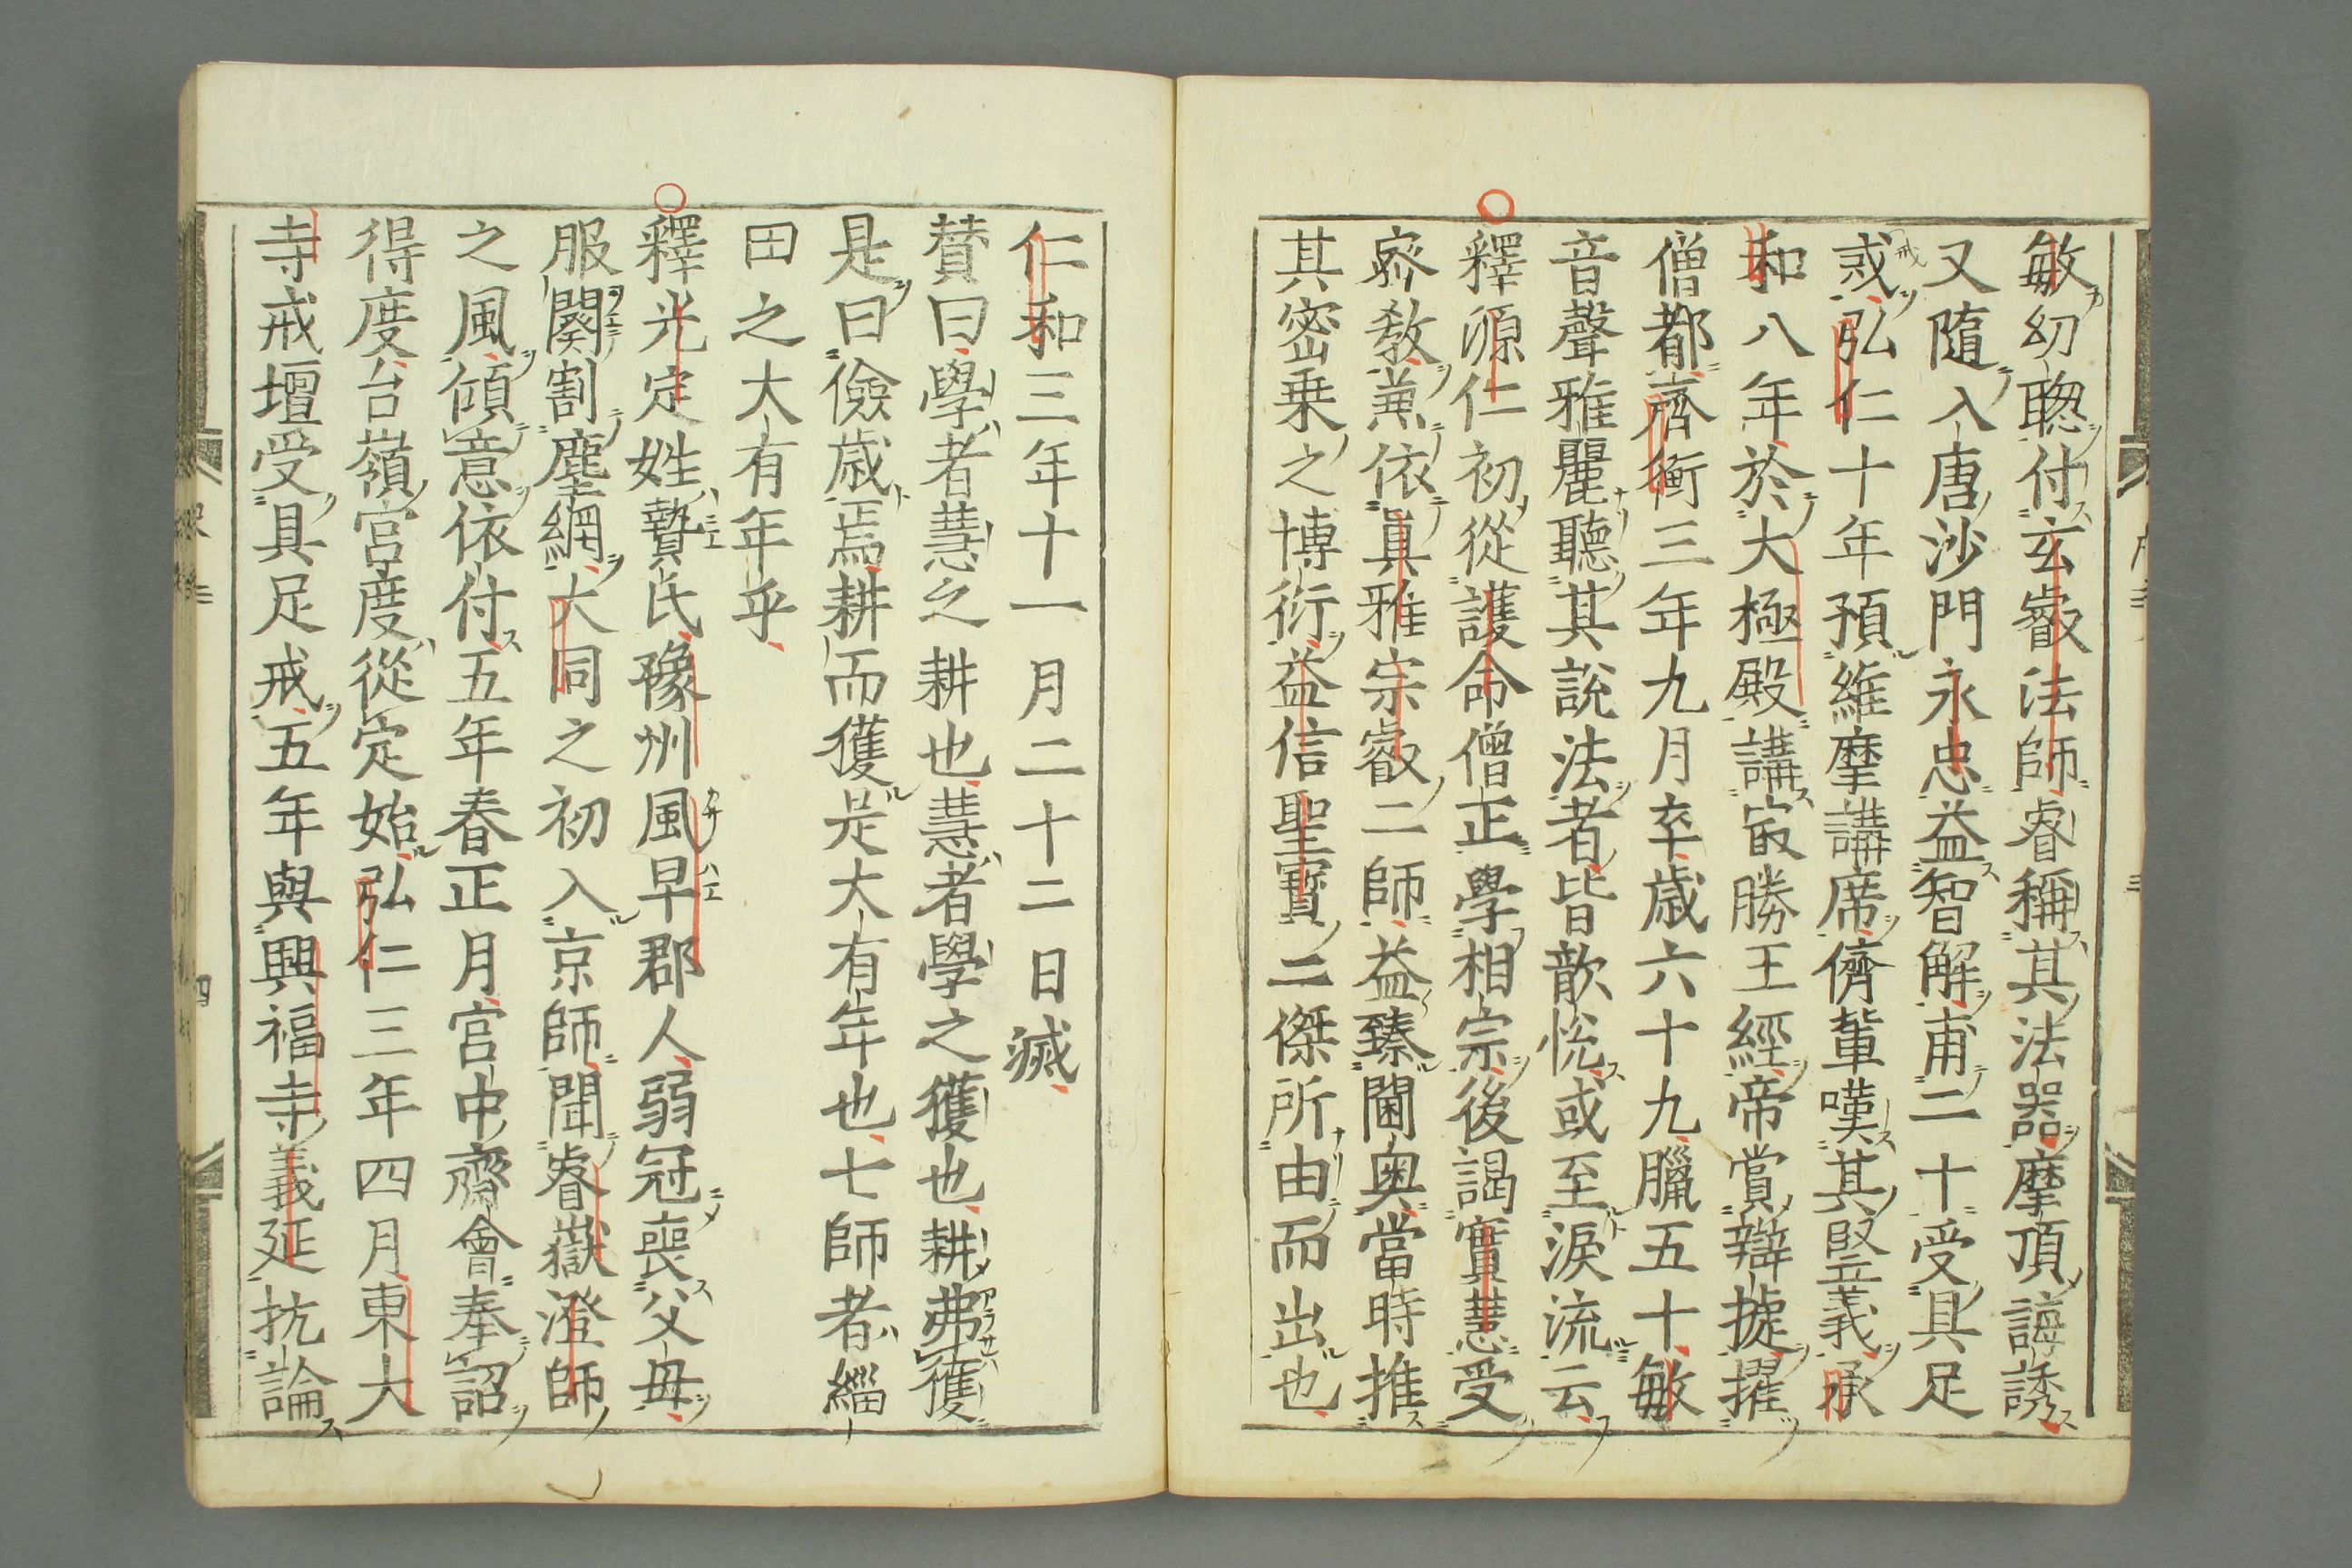 敏幼聰付玄叡法師睿稱其法器摩頂誨誘
又隨入唐沙門永忠益智解甫二十受具足
戒弘仁十年預維摩講席儕輩嘆其竪義承
和八年於大極殿講㝡勝王經帝賞辯㨿擢
僧都齊衡三年九月卒歲六十九臘五十敏
音聲雅麗聽其說法者皆歆悅或至淚流云
釋源仁初從護命僧正學相宗後謁實慧受
密敎兼依眞雅宗叡二師益臻閫奧當時推
其密乗之博衍益信聖寳二傑所由而出也
仁和三年十一月二十二日滅
賛曰學者慧之耕也慧者學之獲也耕弗獲
是曰儉歲焉耕而獲是大有年也七師者緇
田之大有年乎
釋光定姓贄氏豫州風早郡人弱冠喪父母
服闋割塵網大同之初入京師聞睿嶽澄師
之風傾意依付五年春正月宮中齋會奉詔
得度台嶺宮度從定始弘仁三年四月東大
寺戒壇受具足戒五年與興福寺義延抗論